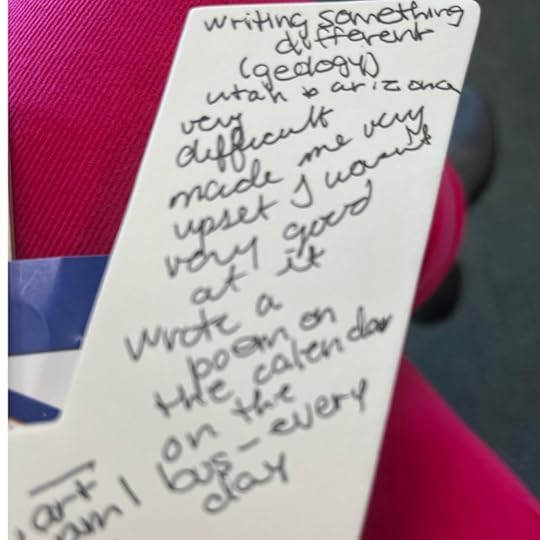 writing something
different
(geology)
utah & arizona
very
difficult
made me very
upset I wasn't
very good
at it
wrote a
poem on
the calendar
on the
bus - every
day
art
am